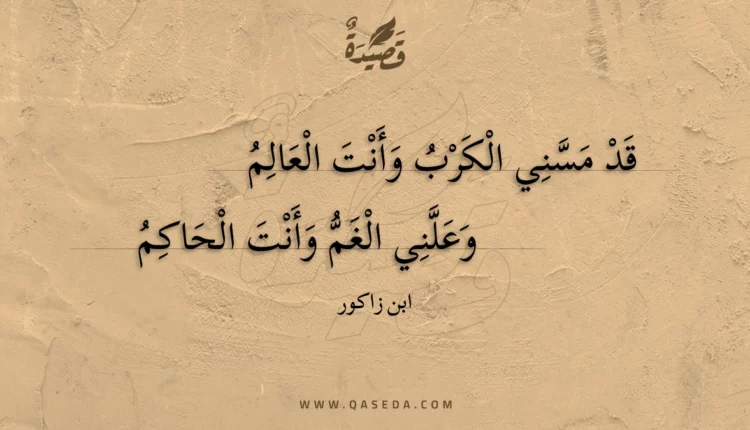 قَصِيدَةٌ
قَدْ مَسَّنِي الْكَرْبُ وَأَنْتَ الْعَالِمُ
وَعَلَّنِي الْغَمُّ وَأَنْتَ الْحَاكِمُ
ابن زاكور
WWW.QASEDA.COM